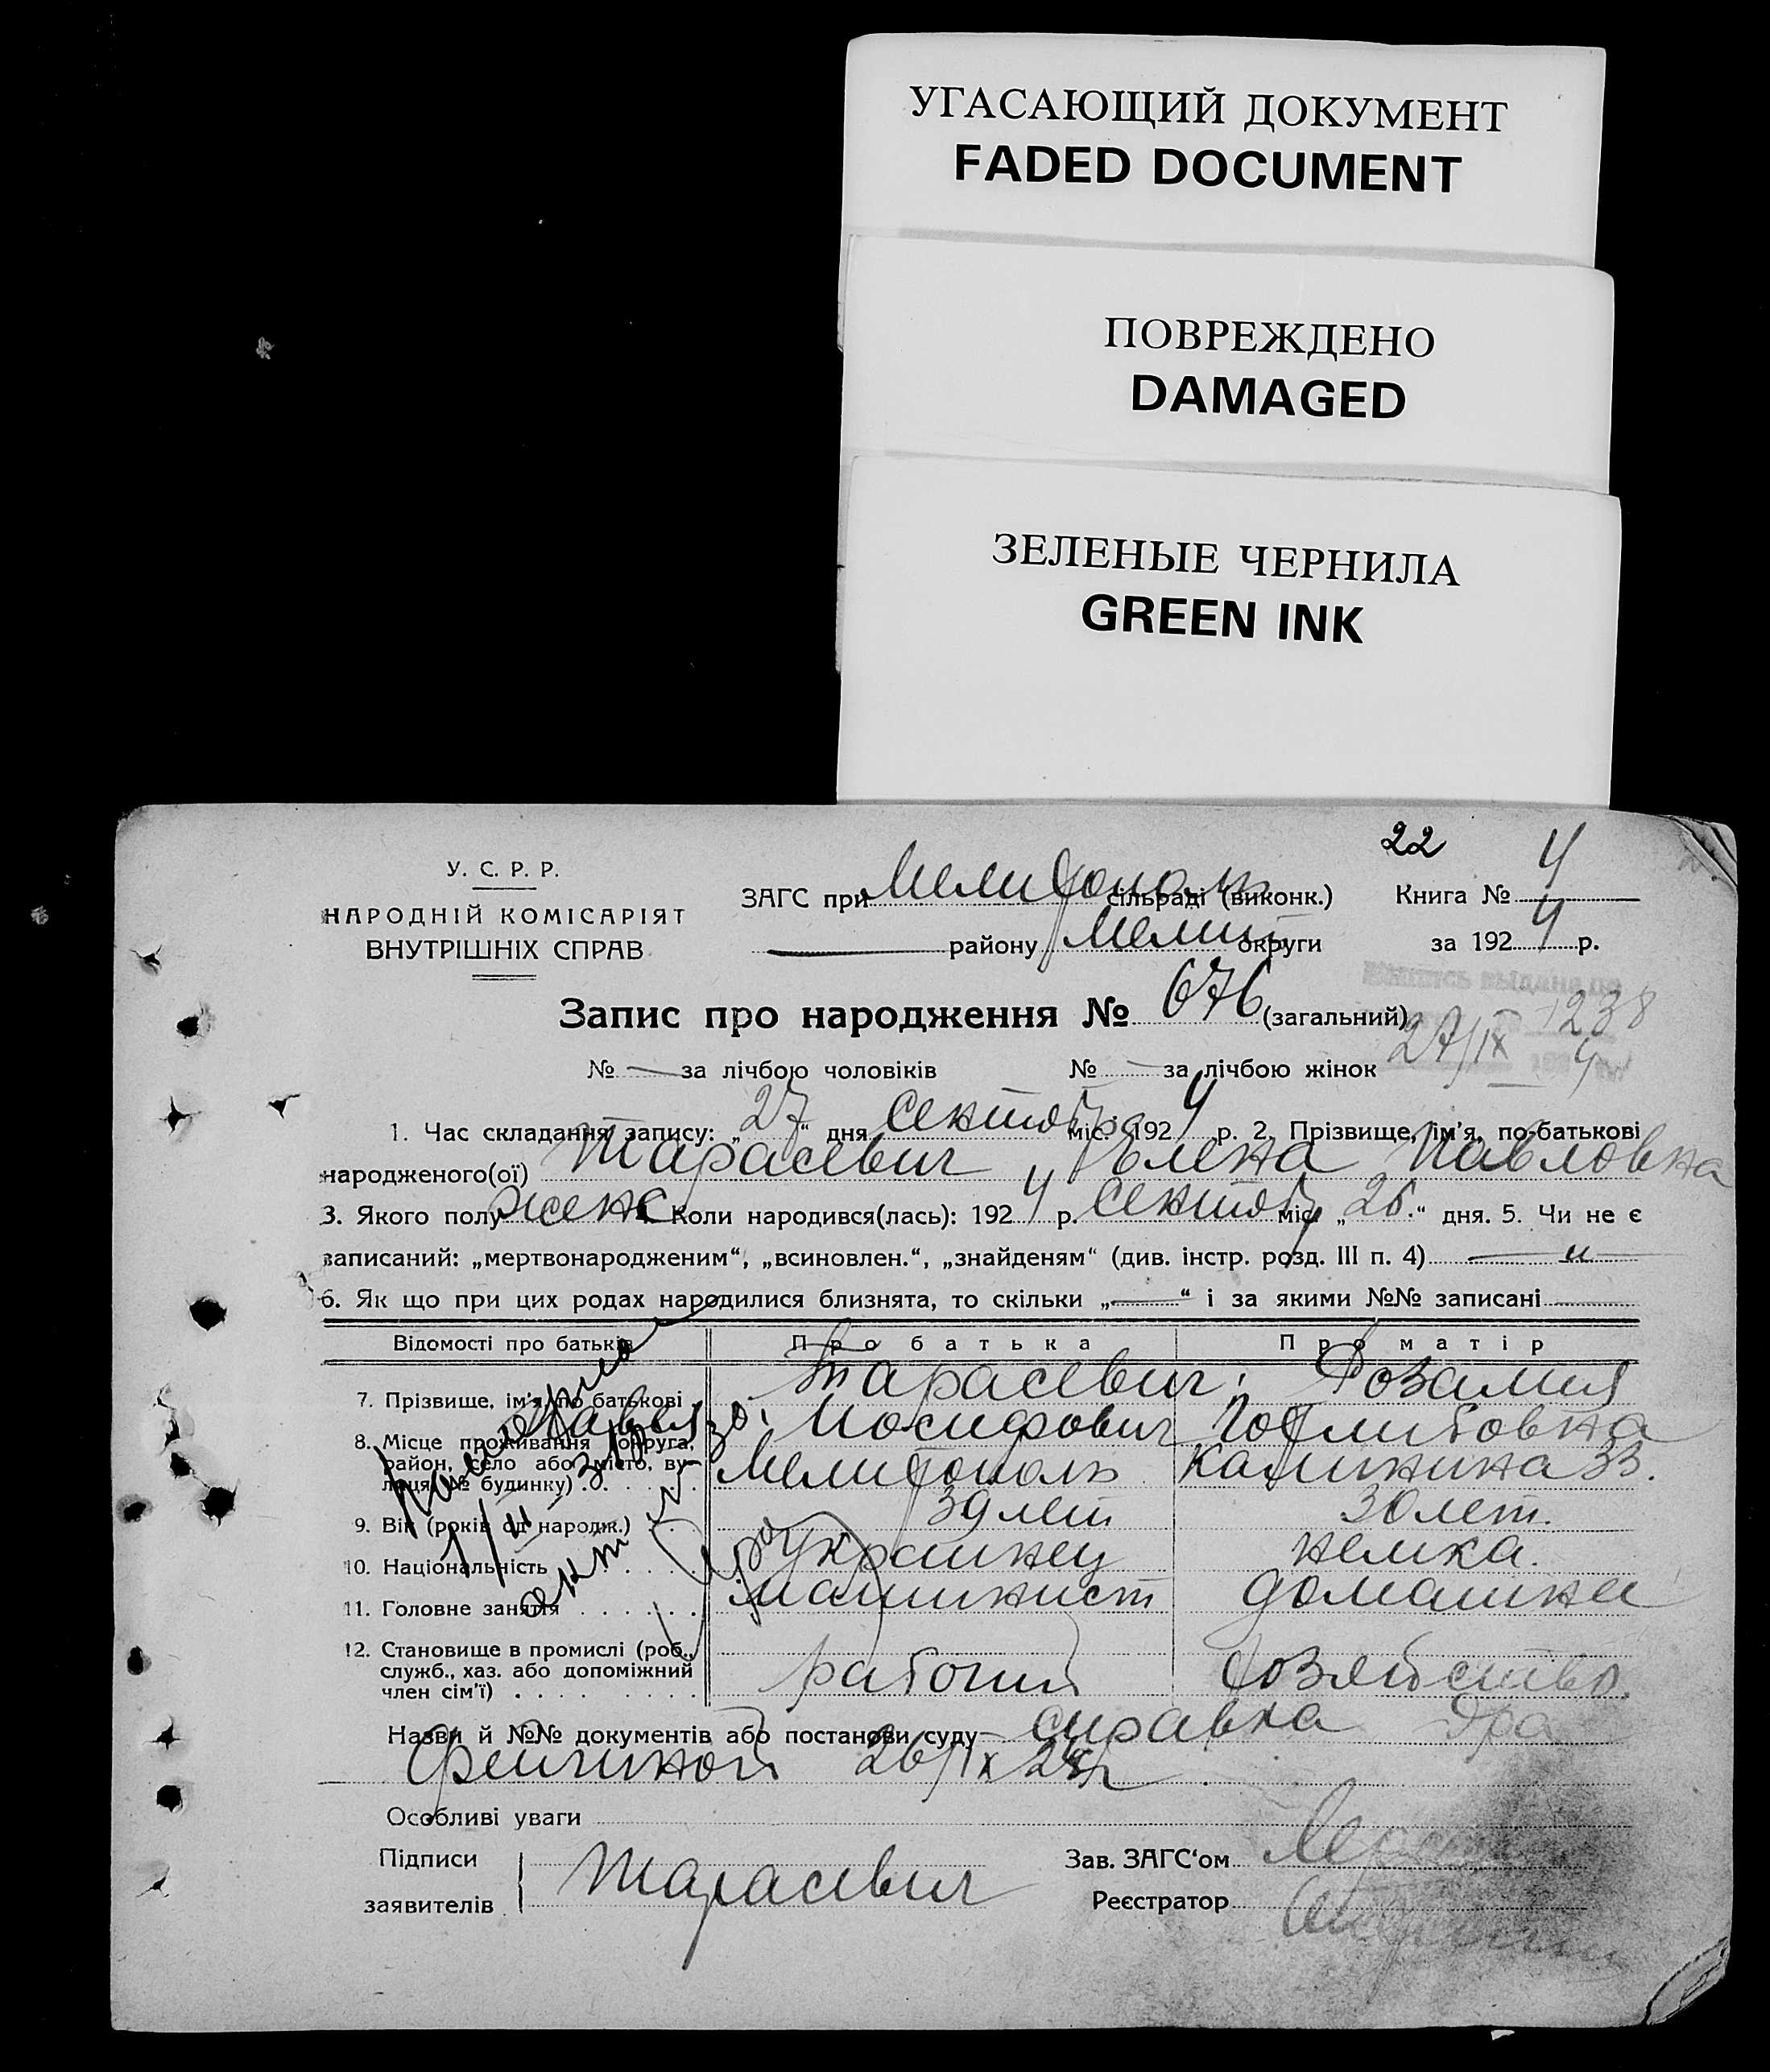 УГАСАЮЩИЙ ДОКУМЕНТ
FADED DOCUMENT
ПОВРЕЖДЕНО
DAMAGED
ЗЕЛЕНЫЕ ЧЕРНИЛА
GREEN INK
22
У. С. Р. Р.
НАРОДНІЙ КОМІСАРІЯТ
ВНУТРІШНІХ СПРАВ
ЗАГС при Мелитополь сільраді (виконк.) Книга № 4
району Мелит округи за 1924 р.
Запис про народження № 676 (загальний)
27/IX 1238
№ — за лічбою чоловіків № — за лічбою жінок
1. Час складання запису: „27“ дня сентябр міс. 1924 р. 2. Прізвище, ім'я, по-батькові
народженого(ої) Тарасевич Елена Павловна
3. Якого полу женс Коли народився(лась): 1924 р. сентябр міс. „26.“ дня. 5. Чи не є
записаний: „мертвонародженим“, „всиновлен.“, „знайденям“ (див. інстр. розд. III п. 4) —
6. Як що при цих родах народилися близнята, то скільки „—“ і за якими №№ записані —
Відомості про батьків Про батька Про матір
7. Прізвище, ім'я, по батькові Тарасевич Розалия
Иосифович Готлибовна
8. Місце проживання (округа, район, село або місто, вулиця, № будинку) Мелитополь Калинина 33.
9. Вік (років од народж.) 39 лет 30 лет.
10. Національність украинец немка.
11. Головне заняття машинист домашнее
12. Становище в промислі (роб., служб., хаз. або допоміжний член сім'ї) рабочий хозяйство.
Назви й №№ документів або постанови суду справка Дра
26/IX 24г
Особливі уваги
Підписи
заявителів Тарасевич
Зав. ЗАГС'ом
Реєстратор